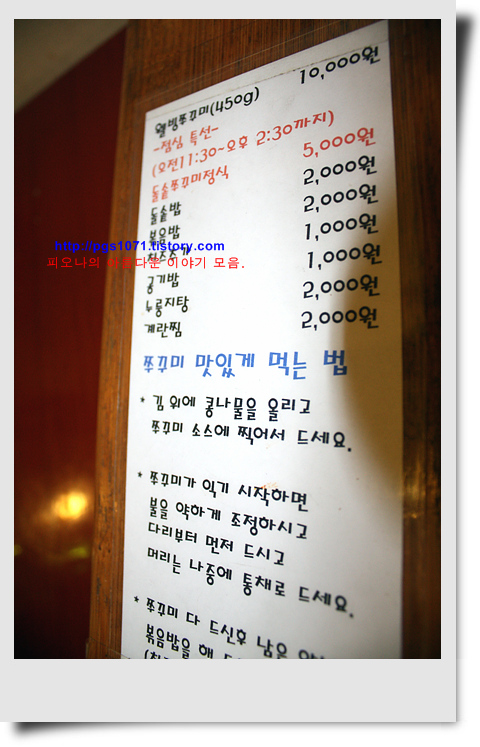 웰빙쭈꾸미(450g) 10,000원
-점심 특선-
(오전11:30~오후 2:30까지)
돌솥쭈꾸미정식 5,000원
돌솥밥 2,000원
볶음밥 2,000원
1,000원
공기밥 1,000원
누룽지탕 2,000원
계란찜 2,000원
http://pgs1071.tistory.com
피오나의 아름다운 이야기 모음.
쭈꾸미 맛있게 먹는 법
* 김 위에 콩나물을 올리고
쭈꾸미 소스에 찍어서 드세요.
* 쭈꾸미가 익기 시작하면
불을 약하게 조정하시고
다리부터 먼저 드시고
머리는 나중에 통채로 드세요.
* 쭈꾸미 다 드신후 남은
볶음밥을 해